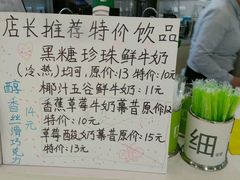 店长推荐特价饮品
黑糖珍珠鲜牛奶
(冷、热)均可,原价:13 特价:10元
椰汁五谷鲜牛奶:11元
香蕉草莓牛奶幕昔原价12
特价:10元
草莓酸奶奶幕昔原价:15元
特价:13元
醇香丝滑巧克力
14元
细